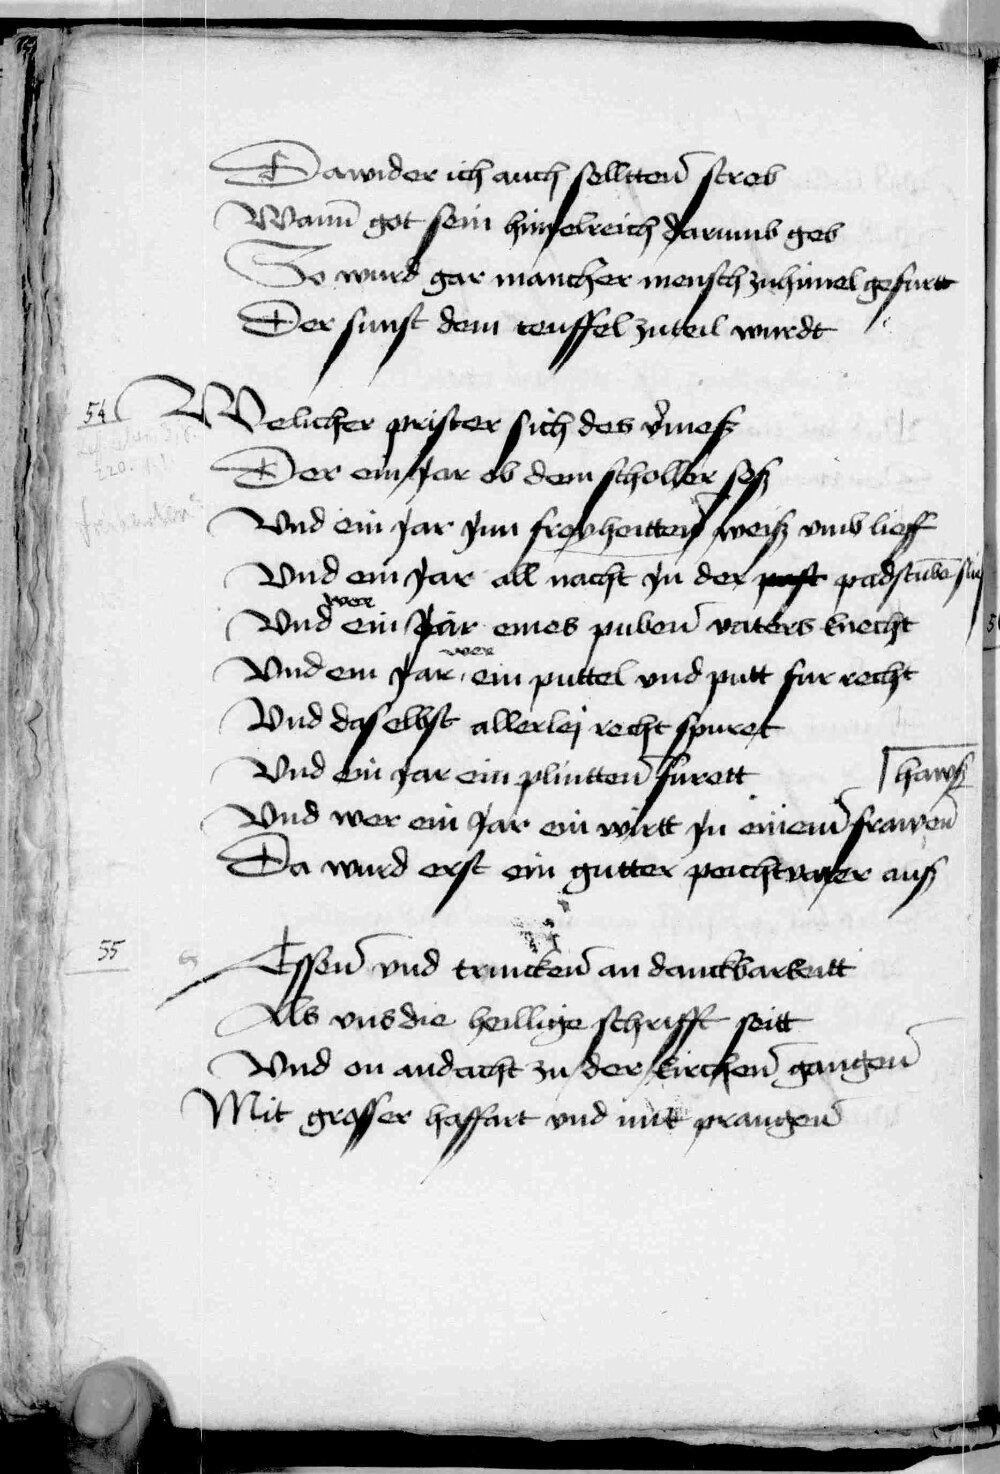 Dawider ich auch selltten̄ streb
Wann̄ got sein himelreich darumb geb
So wurd gar mancher mensch zu himel gefurtt
Der sunst dem teuffel zuteil wurdt
54 Welicher prister sich des v̄mesz
Der ein Jar ob dem scholler sesz
Vnd ein Jar Jnn freyheitten̄ weisz vmb lieff
Vnd ein Jar all nacht Jn der padstuben slieff
wer
Vnd ein Jar eines puben̄ vaters knecht
wer
Vnd ein Jar ein puttel vnd putt fur recht
Vnd daselbst allerlej recht spuret
Vnd ein Jar ein plintten̄ furett
hawsz
Vnd wer ein Jar ein wirtt Jn einem̄ frawen̄
Da wurd erst ein gutter peichtvater ausz
55 Essen̄ vnd trincken̄ an danckbarkeitt
Als vns die heillige schrifft seitt
Vnd on andacht zu der kirchen̄ gangen̄
Mit grosser hoffart vnd mit prangen̄